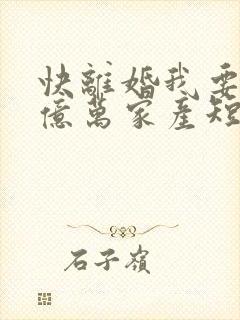 快離婚我要
億萬家產短
石子嶺